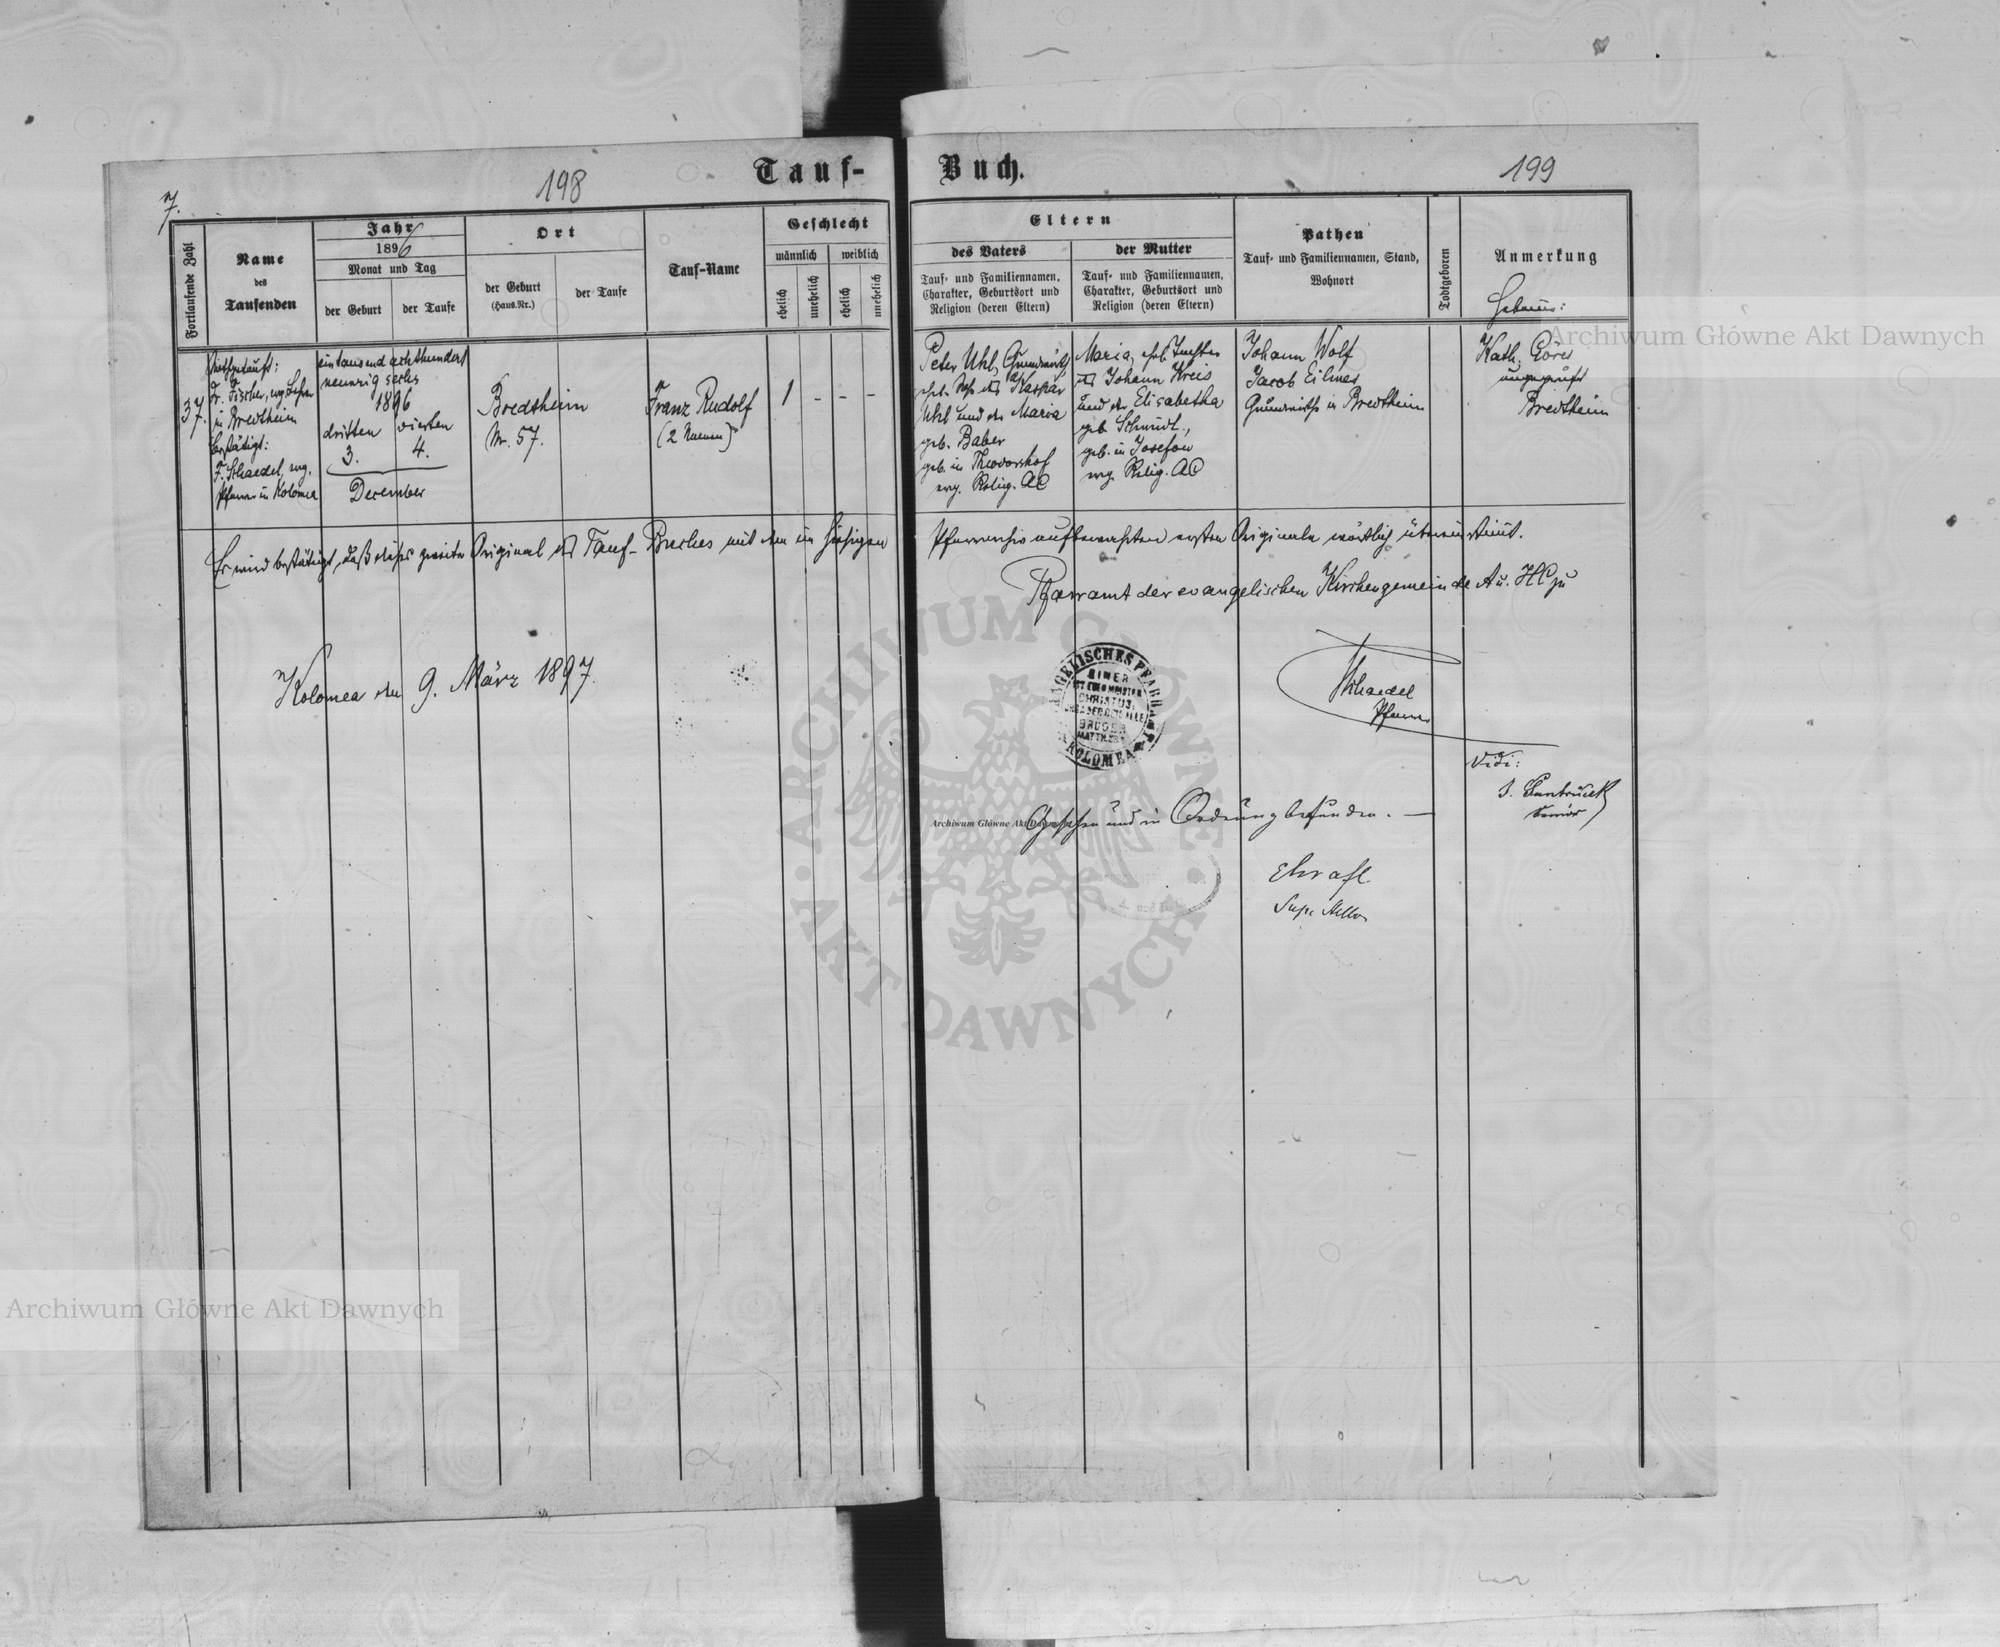 7.
198
Tauf-
Buch.
199
Fortlaufende Zahl
Name
des
Taufenden
Jahr
1896
Monat und Tag
der Geburt
der Taufe
Ort
der Geburt
(Haus-Nr.)
der Taufe
Tauf-Name
Geschlecht
männlich
weiblich
ehelich
unehelich
ehelich
unehelich
Eltern
des Vaters
Tauf- und Familiennamen,
Charakter, Geburtsort und
Religion (deren Eltern)
der Mutter
Tauf- und Familiennamen,
Charakter, Geburtsort und
Religion (deren Eltern)
Pathen
Tauf- und Familiennamen, Stand,
Wohnort
Todtgeboren
Anmerkung
Hebamme:
37.
Nothgetauft:
Fr. Fischer, evg. Lehrer
in Bredtheim
bestätigt:
F. Schaedel, evg.
Pfarrer in Kolomea
eintausend achthundert
neunzig sechs
1896
dritten
vierten
3.
4.
December
Bredtheim
Nr. 57.
Franz Rudolf
(2 Namen)
1
-
-
-
Peter Uhl, Grundwirth,
ehel. Sohn des Kaspar
Uhl und der Maria
geb. Baber
geb. in Theodorshof
evg. Relig. AC
Maria, ehel. Tochter
des Johann Kreis
und der Elisabetha
geb. Schmidt,
geb. in Josefow
evg. Relig. AC
Johann Wolf
Jacob Eilmes
Grundwirthe in Bredtheim
Kath. Göres
ungeprüft
Bredtheim
Es wird bestätigt, daß dieses zweite Original des Tauf-Buches mit dem im hiesigen
Pfarrarchiv aufbewahrten ersten Originale wörtlich übereinstimmt.
Pfarramt der evangelischen Kirchengemeinde Au. HC zu
Kolomea den 9. März 1897.
EVANGELISCHES PFARRAMT
EINER
IST EUER MEISTER
CHRISTUS;
IHR ABER SEID ALLE
BRÜDER
MATTH. 23
KOLOMEA
Schaedel
Pfarrer
Vidi:
Senior
Gesehen und in Ordnung befunden. —
Archiwum Główne Akt Dawnych
Archiwum Główne Akt Dawnych
Archiwum Główne Akt Dawnych
ARCHIWUM GŁÓWNE
AKT DAWNYCH